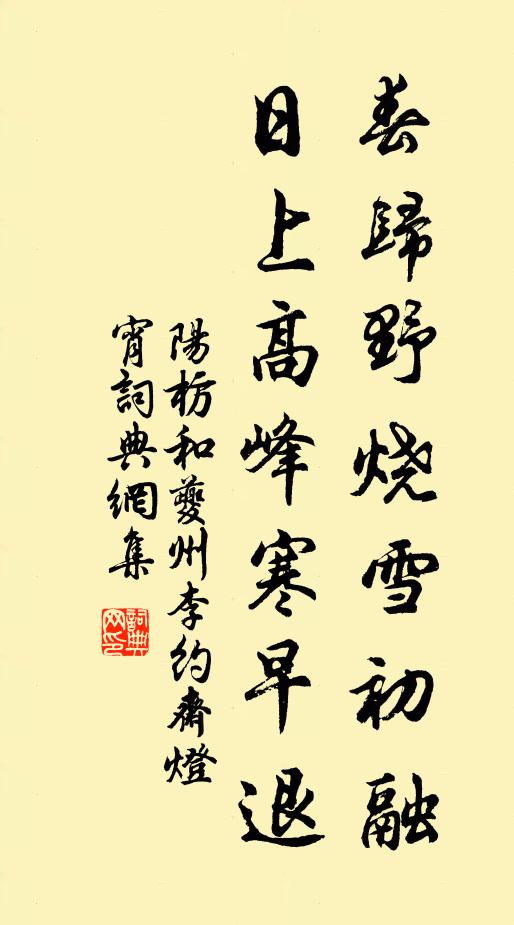 春歸野烧雪初融
日上高峰寒早退
陽枋和夔州李約齋燈
宵詞典網集
詞典网印